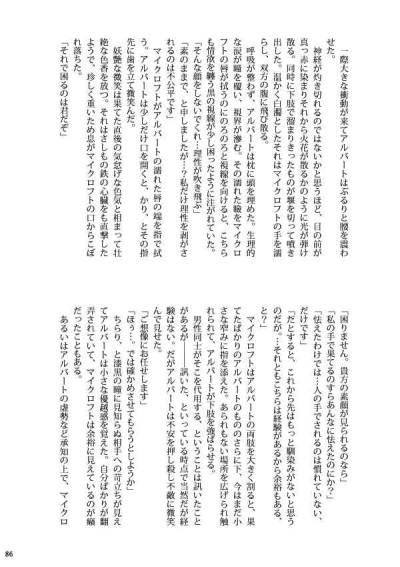 一際大きな衝動が来てアルバートはぶるりと腰を震わ
せた。
　神経が灼き切れるのではないかと思うほど、目の前が
真っ赤に染まりそれから火花が散るかのように光が弾け
散る。同時に下肢で溜まりきったものが堰を切って噴き
出した。温かく白濁としたそれはマイクロフトの手を濡
らし、双方の腹に飛び散る。
　呼吸が整わず、アルバートは枕に頭を埋めた。生理的
な涙が瞳を覆い、視界が滲む。その濡れた瞼をマイクロ
フトの唇が拭うのにのろのろと視線を向けると、こちら
も情欲を纏う黒の視線が少し困ったように注がれていた。
「そんな顔をしないでくれ…理性が吹き飛ぶ」
「素のままで、と申しましたが…？私だけ理性を剥がさ
れるのは不公平です」
　マイクロフトがアルバートの濡れた唇の端を指で拭
う。アルバートは少しだけ口を開くと、かり、とその指
先に歯を立て微笑んだ。
　妖艶な微笑は果てた直後の気怠げな色気と相まって壮
絶な色香を放つ。それはさしもの鉄の心臓をも直撃した
ようで、珍しく重いため息がマイクロフトの口からこぼ
れ落ちた。
「それで困るのは君だぞ」
「困りません。貴方の素顔が見られるのなら」
「私の手で果てるのすらあんなに怯えたのにか？」
「怯えたわけでは…人の手でされるのは慣れていない、
だけです」
「だとすると、これから先はもっと馴染みがないと思う
のだが、…それともこちらは経験があるから余裕もある、
と？」
　マイクロフトはアルバートの両肢を大きく割ると、果
てたばかりのアルバートのもののさらに下、今はまだ小
さな窄みに指を添えた。あられもない場所を広げられ触
れられて、アルバートが下肢を強ばらせる。
　男性同士がそこを代用する、ということは訊いたこと
があるが――訊いた、といっている時点で当然だが経
験はない。だがアルバートは不安を押し殺し不敵に微笑
んで見せた。
「ご想像にお任せします」
「ほぅ…。では確かめさせてもらうとしようか」
　ちらり、と漆黒の瞳に見知らぬ相手への苛立ちが見え
てアルバートは小さな優越感を覚えた。自分ばかりが翻
弄されていて、マイクロフトは余裕に見えているのが癪
だったこともある。
　あるいはアルバートの虚勢など承知の上で、マイクロ
86